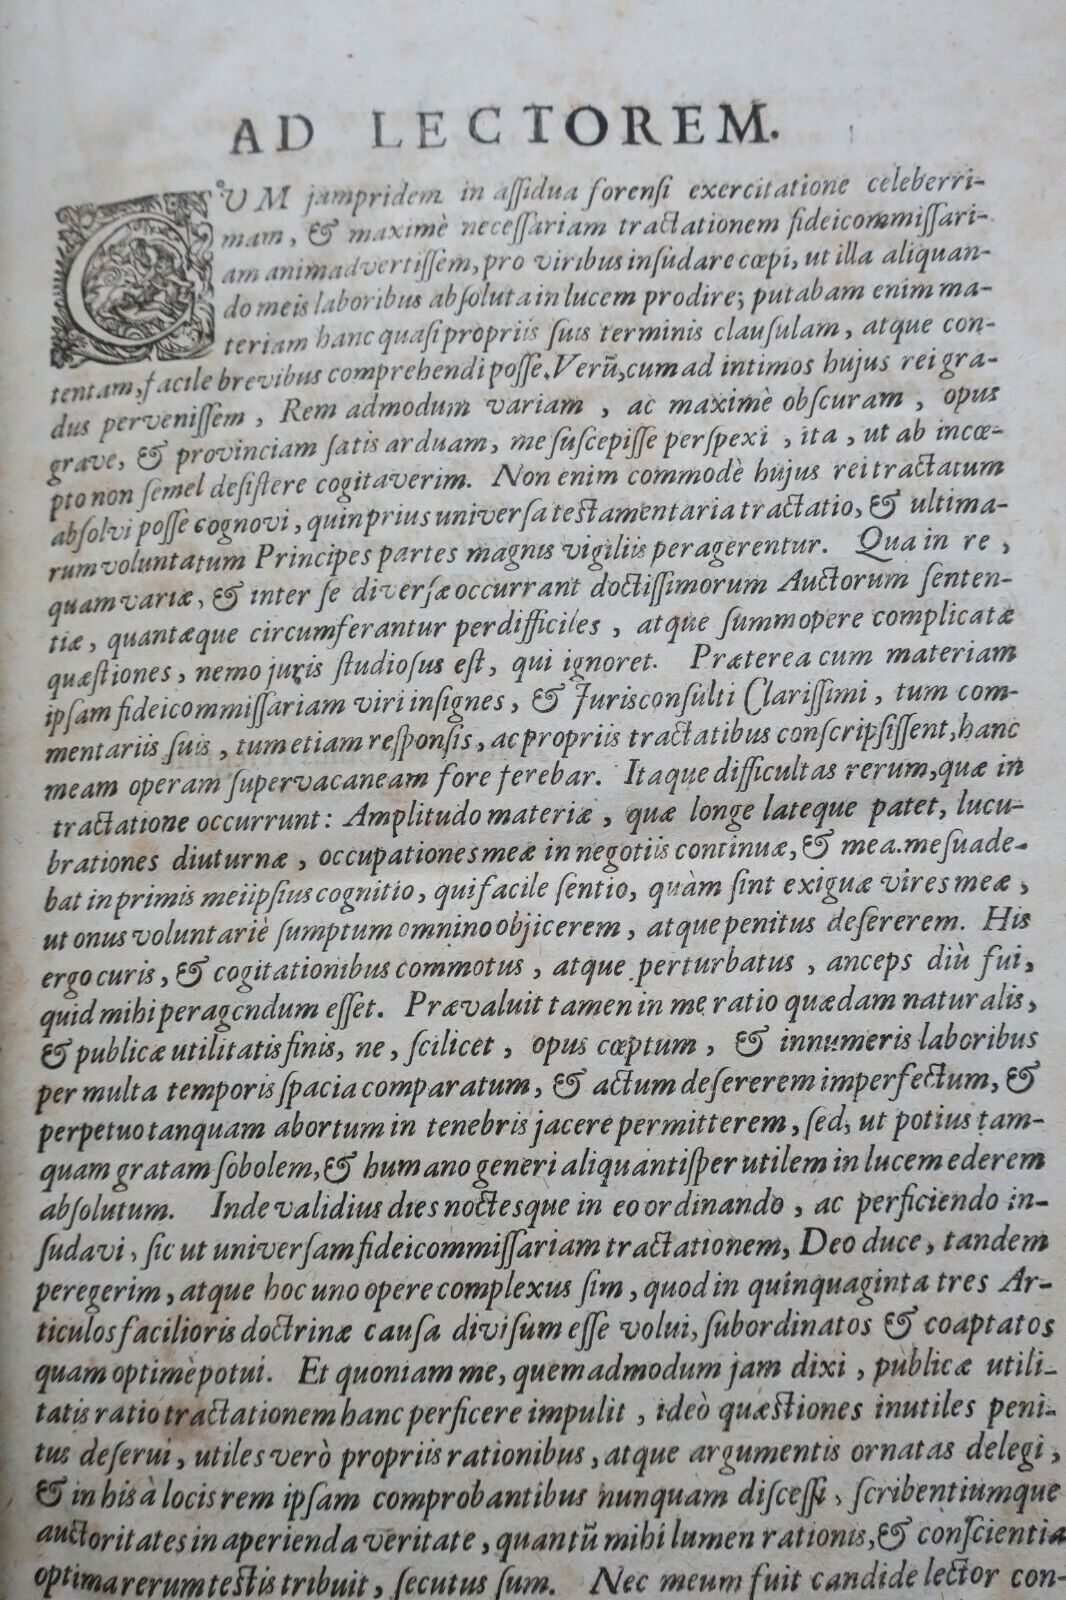 AD LECTOREM.
CUM jampridem in aſſidua forenſi exercitatione celeberri-
mam, & maximè neceſſariam tractationem fideicommiſſari-
am animadvertiſſem, pro viribus inſudare cœpi, ut illa aliquan-
do meis laboribus abſoluta in lucem prodire; putabam enim ma-
teriam hanc quaſi propriis ſuis terminis clauſulam, atque con-
tentam, facile brevibus comprehendi poſſe. Verũ, cum ad intimos hujus rei gra-
dus perveniſſem, Rem admodum variam, ac maximè obſcuram, opus
grave, & provinciam ſatis arduam, me ſuſcepiſſe perſpexi, ita, ut ab incœ-
pto non ſemel deſiſtere cogitaverim. Non enim commodè hujus rei tractatum
abſolvi poſſe cognovi, quin prius univerſa teſtamentaria tractatio, & ultima-
rum voluntatum Principes partes magnis vigiliis peragerentur. Qua in re,
quam variæ, & inter ſe diverſæ occurrant doctiſſimorum Auctorum ſenten-
tiæ, quantæque circumferantur perdifficiles, atque ſummopere complicatæ
quæſtiones, nemo juris ſtudioſus eſt, qui ignoret. Præterea cum materiam
ipſam fideicommiſſariam viri inſignes, & Jurisconſulti Clariſſimi, tum com-
mentariis ſuis, tum etiam reſponſis, ac propriis tractatibus conſcripſiſſent, hanc
meam operam ſupervacaneam fore rebar. Itaque difficultas rerum, quæ in
tractatione occurrunt: Amplitudo materiæ, quæ longe lateque patet, lucu-
brationes diuturnæ, occupationes meæ in negotiis continuæ, & mea. me ſuade-
bat in primis meiipſius cognitio, qui facile ſentio, quàm ſint exiguæ vires meæ,
ut onus voluntariè ſumptum omnino objicerem, atque penitus deſererem. His
ergo curis, & cogitationibus commotus, atque perturbatus, anceps diù fui,
quid mihi peragendum eſſet. Prævaluit tamen in me ratio quædam naturalis,
& publicæ utilitatis finis, ne, ſcilicet, opus cœptum, & innumeris laboribus
per multa temporis ſpacia comparatum, & actum deſererem imperfectum, &
perpetuo tanquam abortum in tenebris jacere permitterem, ſed, ut potius tam-
quam gratam ſobolem, & humano generi aliquantiſper utilem in lucem ederem
abſolutum. Inde validius dies noctesque in eo ordinando, ac perficiendo in-
ſudavi, ſic ut univerſam fideicommiſſariam tractationem, Deo duce, tandem
peregerim, atque hoc uno opere complexus ſim, quod in quinquaginta tres Ar-
ticulos facilioris doctrinæ cauſa diviſum eſſe volui, ſubordinatos & coaptatos
quam optimè potui. Et quoniam me, quemadmodum jam dixi, publicæ utili-
tatis ratio tractationem hanc perficere impulit, ideò quæſtiones inutiles peni-
tus deſerui, utiles verò propriis rationibus, atque argumentis ornatas delegi,
& in his à locis rem ipſam comprobantibus nunquam diſceſſi, ſcribentiumque
auctoritates in aperienda veritate, quantũ mihi lumen rationis, & conſcientia
optima rerum teſtis tribuit, ſecutus ſum. Nec meum fuit candide lector con-